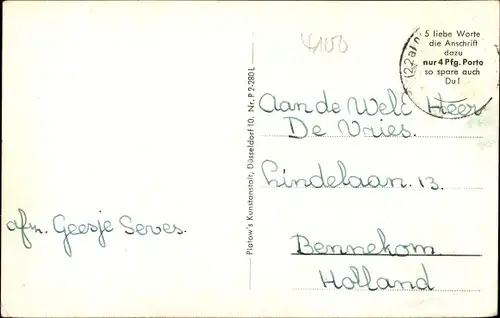 4100
5 liebe Worte
die Anschrift
dazu
nur 4 Pfg. Porto
so spare auch
Du!
(22a)
Aan de Wel. Heer
De Vries.
Lindelaan. 13.
afz. Geesje Serves.
Bennekom
Holland
Platow's Kunstanstalt, Düsseldorf 10, Nr. P 2-280 L